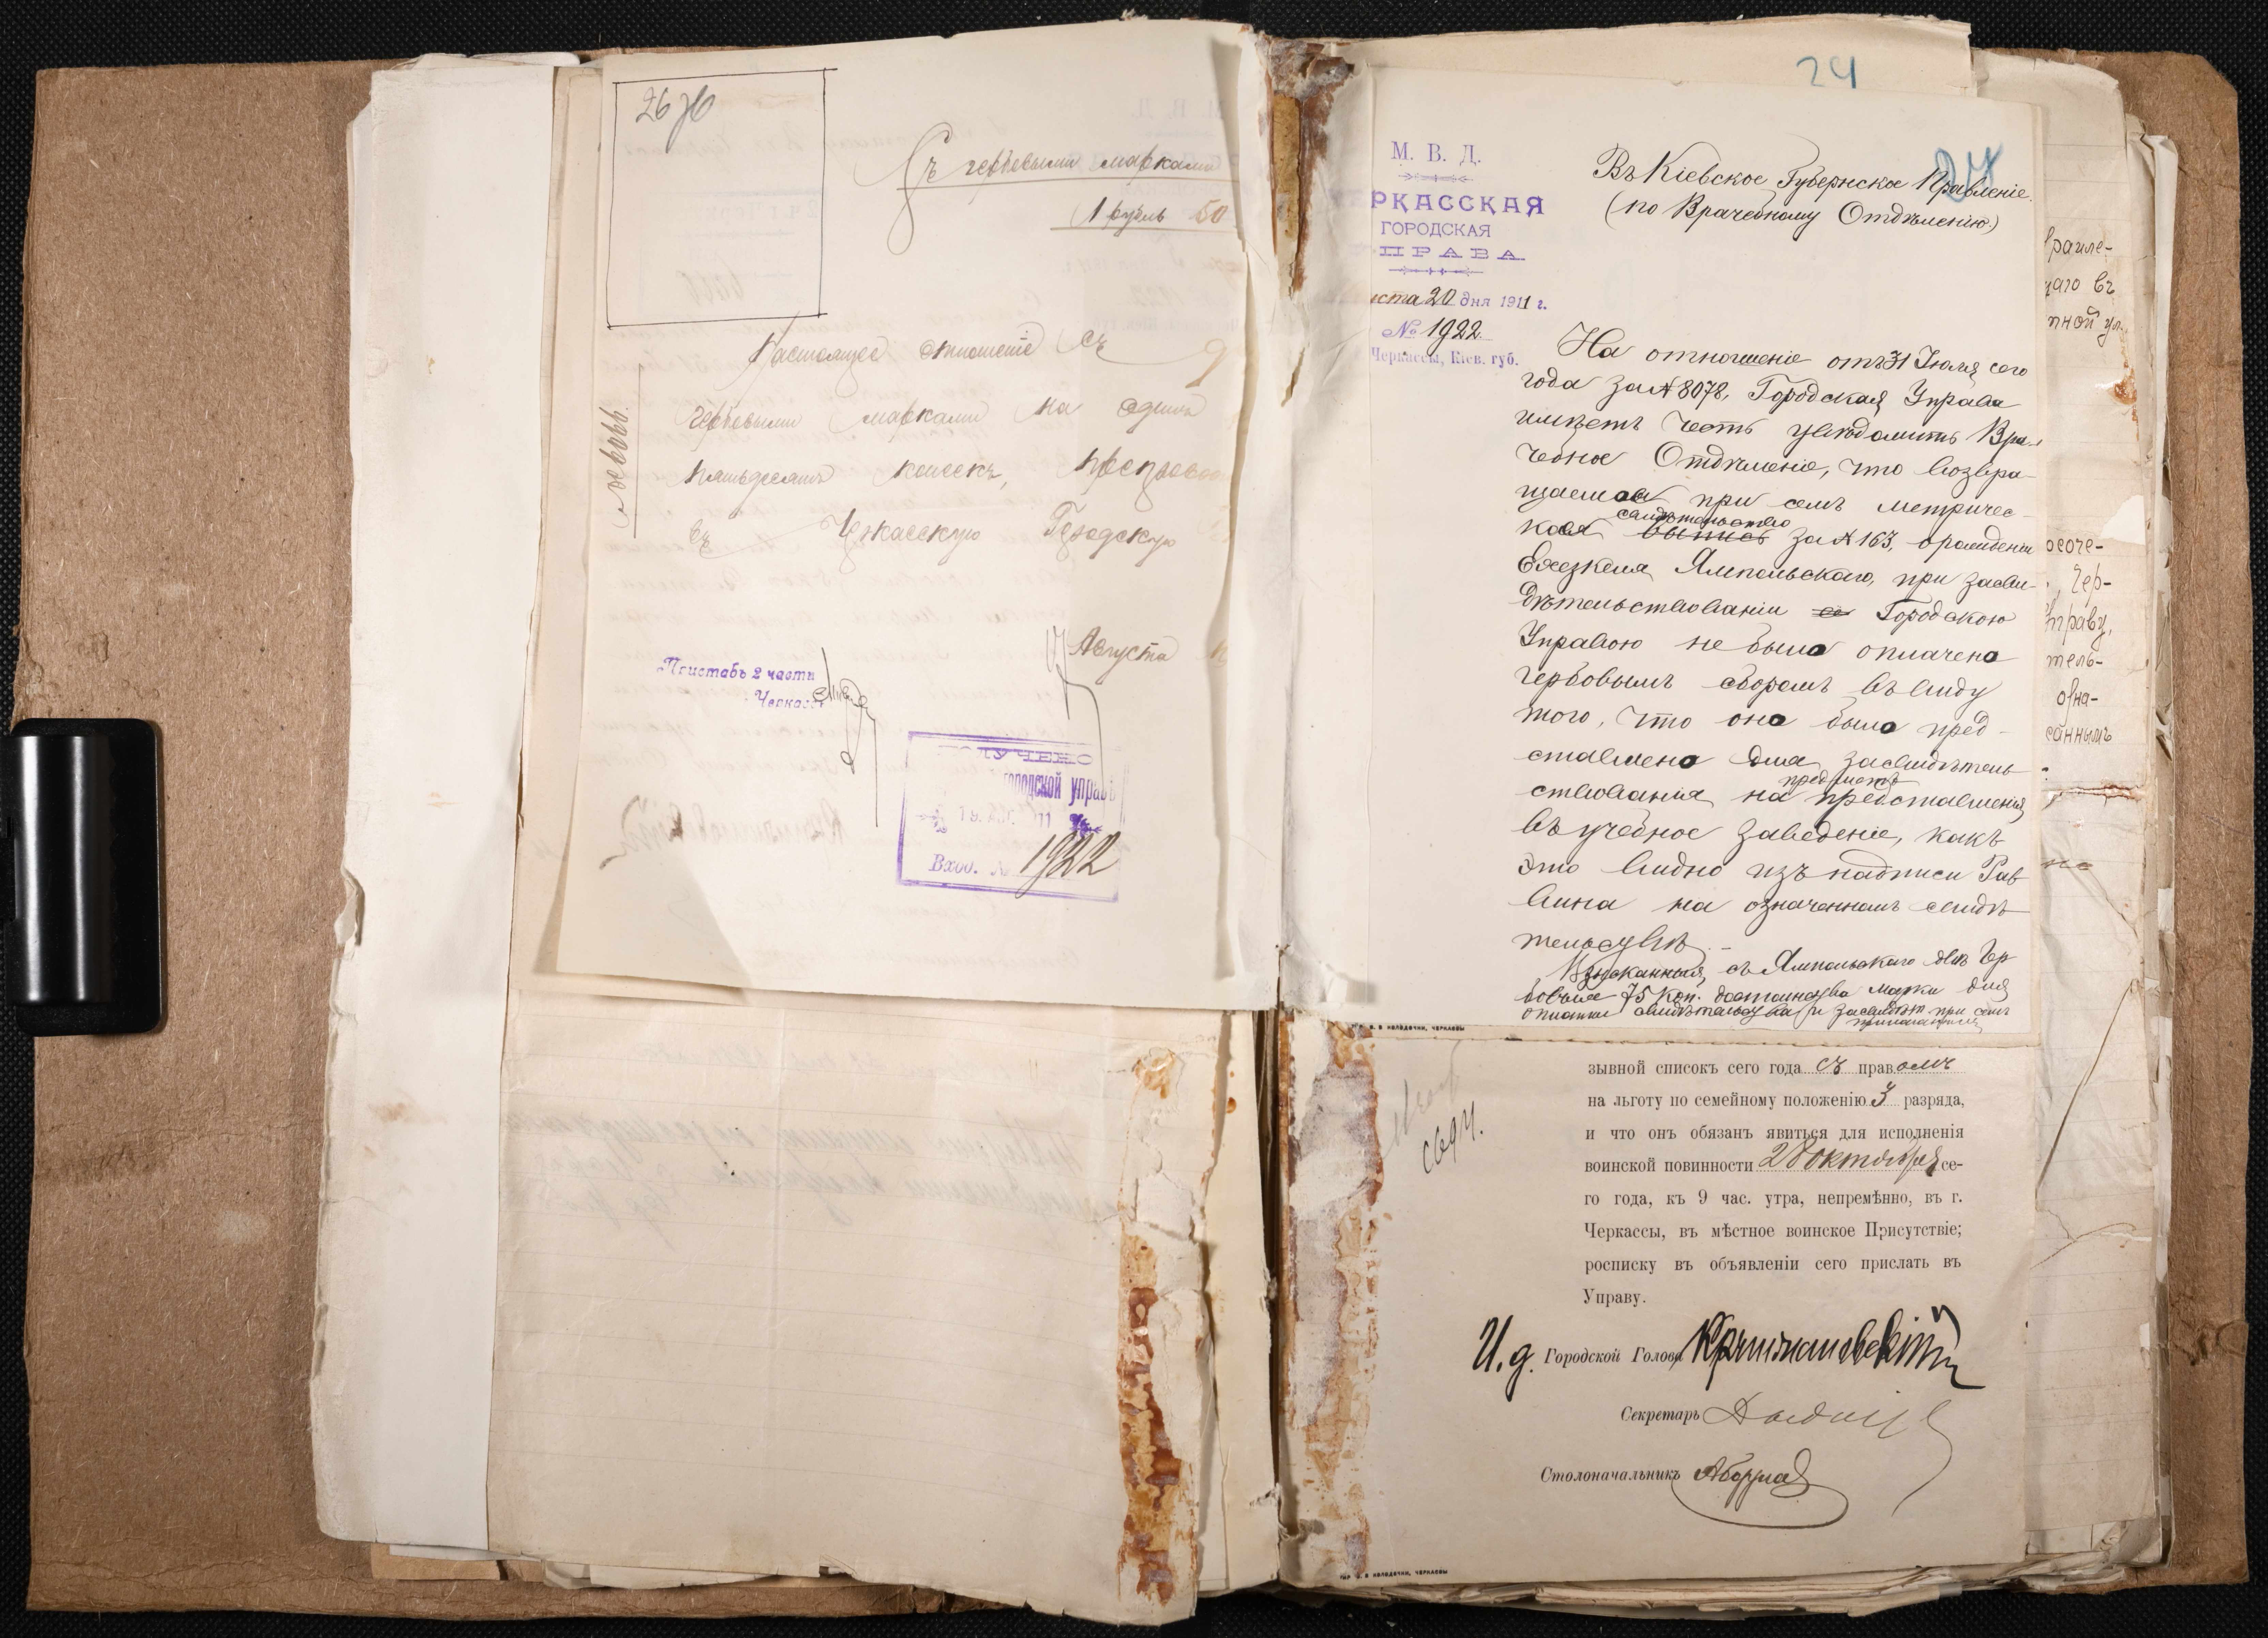 26 ж
Съ гербовыми марками
1 рубль 50
Настоящее отношеніе съ
гербовыми марками на одинъ
пятьдесятъ копеекъ, препровож
въ Черкасскую Городскую
Августа
Приставъ 2 части
Черкасс
ЛУЧЕНО
городской управ
19. АВГ. 11
Вход. № 1922
24
24
М. В. Д.
РКАССКАЯ
ГОРОДСКАЯ
ПРАВА
уста 20 дня 1911 г.
№ 1922
Черкассы, Кіев. губ.
Въ Кіевское Губернское Правленіе
(по Врачебному Отдѣленію)
На отношеніе отъ 31 Іюля сего
года за № 8078, Городская Управа
имѣетъ честь увѣдомить Вра-
чебное Отдѣленіе, что возвра-
щаемое при семъ метричес-
свидѣтельство
кое выпись за № 163, о рожденіи
Ехезкеля Ямпольскаго, при засви-
дѣтельствованіи ея Городскою
Управою не было оплачено
гербовымъ сборомъ въ виду
того, что оно было пред-
ставлено для засвидѣтель-
предметъ
ствованія на представленія
въ учебное заведеніе, какъ
это видно изъ надписи Рав-
вина на означенномъ свидѣ-
тельствѣ.
Взысканныя съ Ямпольскаго двѣ гер-
бовыя 75 коп. достоинства марки для
оплаты свидѣтельства и засвидѣт. при семъ
прилагаются
раиле-
щаго въ
пной ул.
осоче-
, Чер-
праву,
тель-
озна-
саннымъ
зывной списокъ сего года съ правомъ
на льготу по семейному положенію 3 разряда,
и что онъ обязанъ явиться для исполненія
воинской повинности 28 октября се-
го года, къ 9 час. утра, непремѣнно, въ г.
Черкассы, въ мѣстное воинское Присутствіе;
росписку въ объявленіи сего прислать въ
Управу.
И. д. Городской Голова Крыжановскій
Секретарь
Столоначальникъ